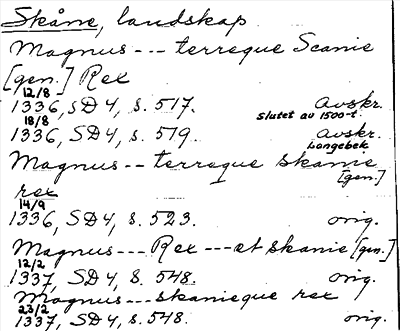 Skåne, landskap
Magnus --- terreque Scanie
[gen.] Rex
12/8
1336, SD 4, s. 517. Avskr.
slutet av 1500-t.
18/8
1336, SD 4, s. 519. Avskr.
Langebek
Magnus -- terreque skanie
[gen.]
rex
14/9
1336, SD 4, s. 523. orig.
Magnus --- Rex --- et skanie [gen.]
12/2
1337, SD 4, s. 548. orig.
Magnus --- skanieque rex
23/2
1337, SD 4, s. 548. orig.